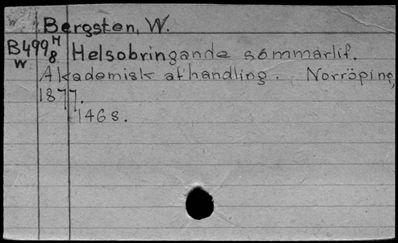 Bergsten, W.
B499 H
8 Helsobringande sommarlif.
W
Akademisk afhandling. Norröping,
1877.
1468.